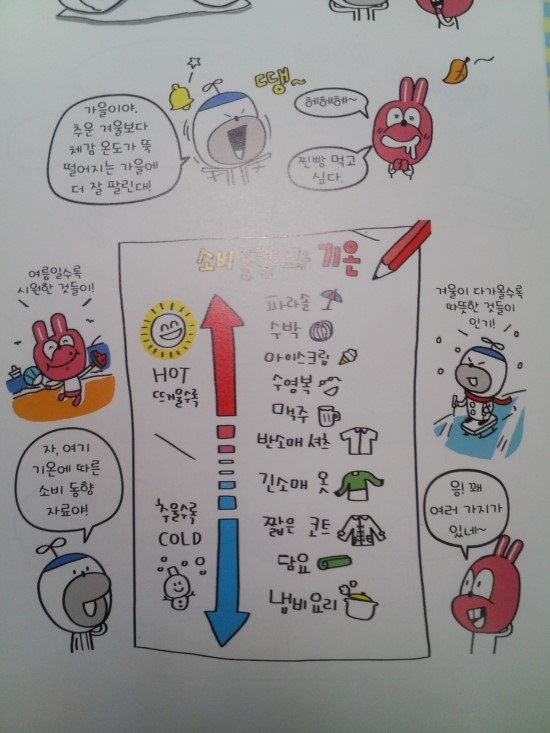 땡~
가을이야.
추운 겨울보다
체감 온도가 뚝
떨어지는 가을에
더 잘 팔린대!
헤헤헤~
찐빵 먹고
싶다.
소비 기온
여름일수록
시원한 것들이!
겨울이 다가올수록
따뜻한 것들이
인기!
HOT
뜨거울수록
파라솔
수박
아이스크림
수영복
맥주
반소매 셔츠
긴소매 옷
짧은 코트
담요
냄비요리
추울수록
COLD
자, 여기
기온에 따른
소비 동향
자료야!
응! 꽤
여러 가지가
있네~